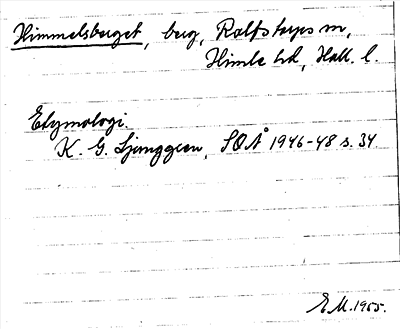 Himmelsberget, berg, Rolfstorps sn,
Himle hd, Hall. l.
Etymologi.
K. G. Ljunggren, SOÅ 1946-48 s. 34
E.M. 1955.